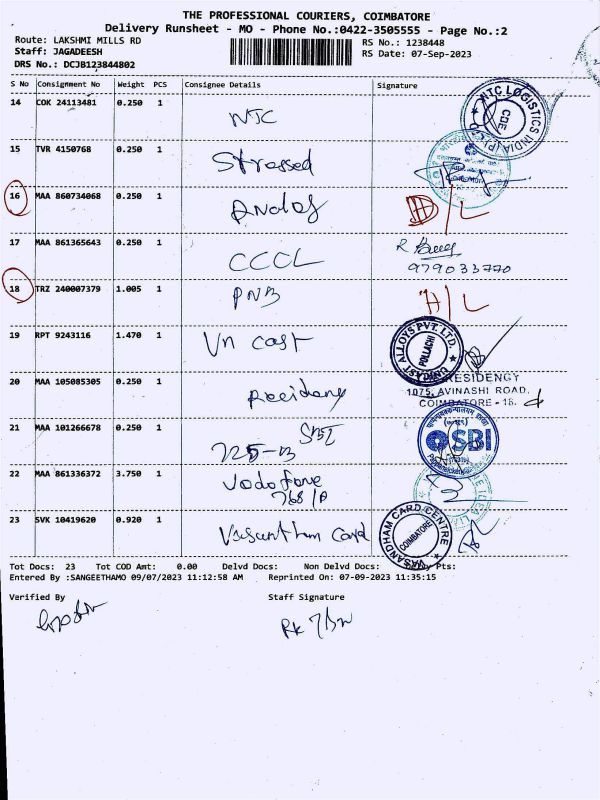 THE PROFESSIONAL COURIERS, COIMBATORE
Delivery Runsheet - MO - Phone No.:0422-3505555 - Page No.:2
Route: LAKSHMI MILLS RD
RS No.: 1238448
Staff: JAGADEESH
RS Date: 07-Sep-2023
DRS No.: DCJB123844802
S No Consignment No Weight PCS Consignee Details Signature
14 COK 24113481 0.250 1 NTC
NTC LOGISTICS INDIA (P) CBE
15 TVR 4150768 0.250 1 Stressed
16 MAA 860734068 0.250 1 D/L
17 MAA 861365643 0.250 1 CCCL
979033770
18 TRZ 240007379 1.005 1 PNB H/L
19 RPT 9243116 1.470 1 Vn cast
UNICAST ALLOYS PVT. LTD. POLLACHI
20 MAA 105085305 0.250 1 Residency
RESIDENCY
1075, AVINASHI ROAD,
COIMBATORE - 18.
21 MAA 101266678 0.250 1 SBI
725-B
SBI
22 MAA 861336372 3.750 1 Vodofone
768/A
23 SVK 10419620 0.920 1 Vasantham Card
VASANDHAM CARD CENTRE COIMBATORE
Tot Docs: 23 Tot COD Amt: 0.00 Delvd Docs: Non Delvd Docs: Pts:
Entered By :SANGEETHAMO 09/07/2023 11:12:58 AM Reprinted On: 07-09-2023 11:35:15
Verified By Staff Signature